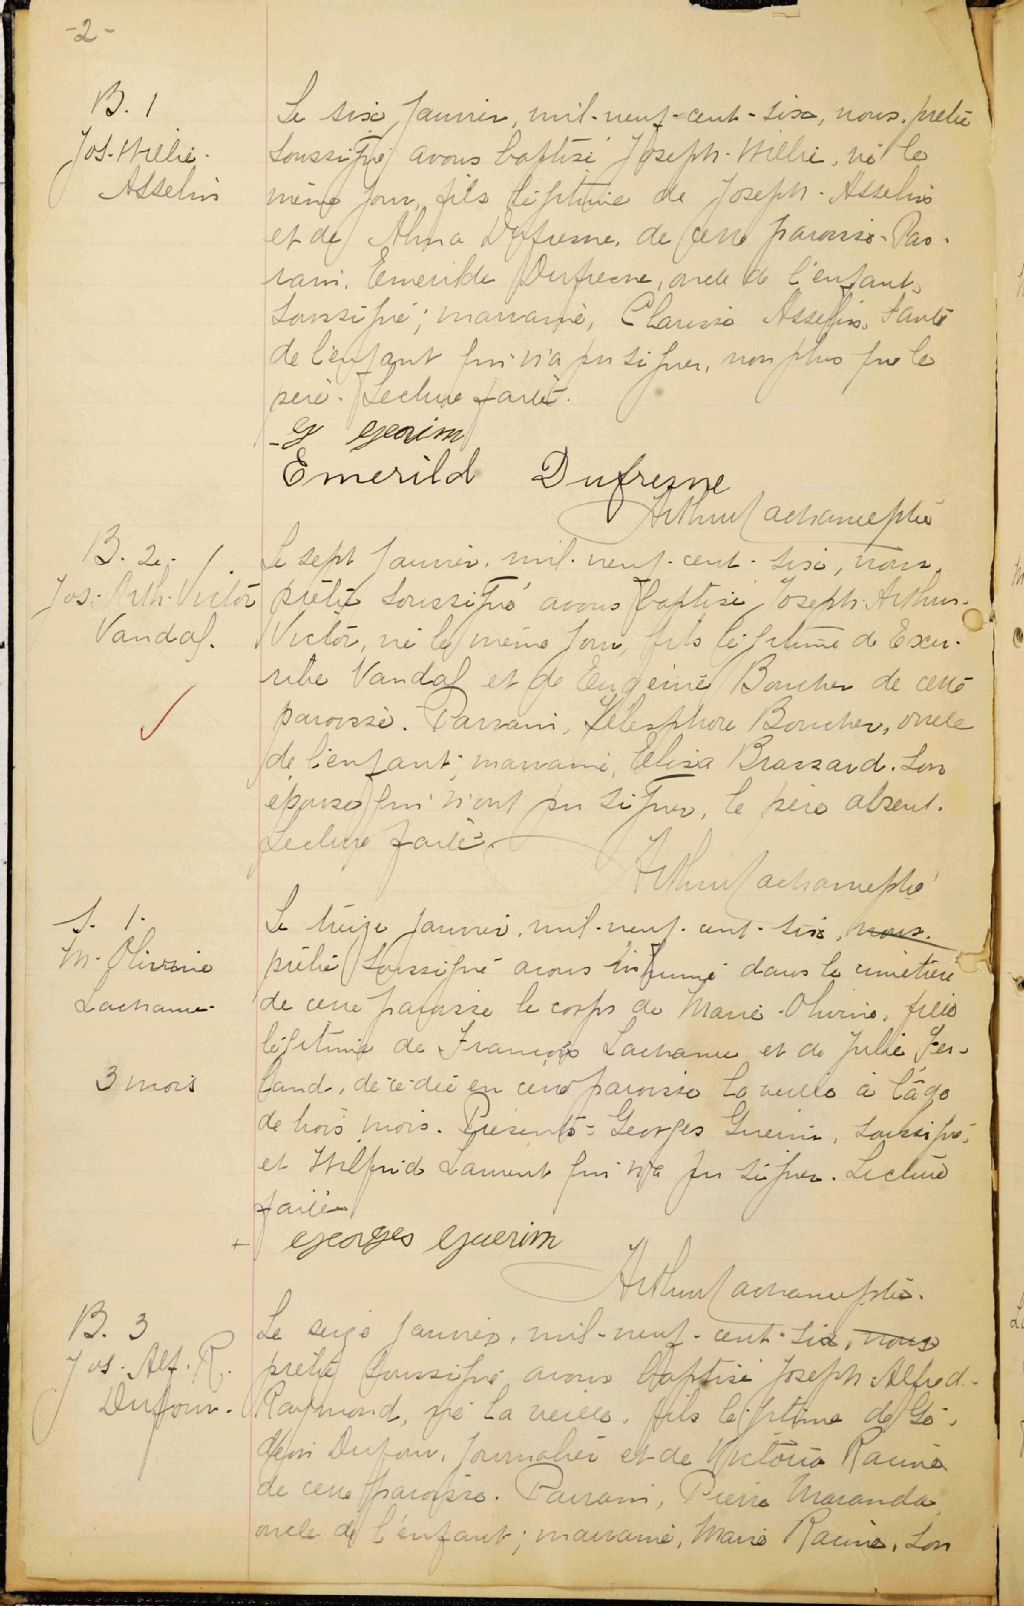 -2-
B. 1
Jos. Willie.
Asselin
Le six Janvier, mil-neuf-cent-six, nous, prêtre
soussigné avons baptisé Joseph-Willie, né le
même jour, fils légitime de Joseph-Asselin
et de Alma Dufresne, de cette paroisse. Par-
rain, Emerilde Dufresne, oncle de l'enfant,
soussigné; marraine, Clarisse Asselin, tante
de l'enfant qui n'a pu signer, non plus que le
père. Lecture faite.
Emerild Dufresne
Arthur Lachance ptre
B. 2.
Jos. Arth. Victor
Vandal.
Le sept Janvier, mil-neuf-cent-six, nous,
prêtre soussigné avons baptisé Joseph-Arthur-
Victor, né le même jour, fils légitime de
Vandal et de Eugénie Boucher de cette
paroisse. Parrain, Télesphore Boucher, oncle
de l'enfant; marraine, Elisa Brassard. Son
épouse qui n'ont pu signer, le père absent.
Lecture faite.
Arthur Lachance ptre
S. 1.
M. Olivine
Lachance
3 mois
Le treize Janvier, mil-neuf-cent-six, nous,
prêtre soussigné avons inhumé dans le cimetière
de cette paroisse le corps de Marie-Olivine, fille
légitime de François Lachance et de Julie Fer-
land, décédée en cette paroisse la veille à l'âge
de trois mois. Présents: Georges Guerin, soussigné,
et Wilfrid Laurent qui n'a pu signer. Lecture
faite.
+ Georges Guerin
Arthur Lachance ptre.
B. 3
Jos. Alf. R.
Dufour.
Le seize Janvier, mil-neuf-cent-six, nous
prêtre soussigné avons baptisé Joseph-Alfred-
Raymond, né la veille, fils légitime de Gé-
déon Dufour, journalier et de Victoria Racine
de cette paroisse. Parrain, Pierre Maranda,
oncle de l'enfant; marraine, Marie Racine, son